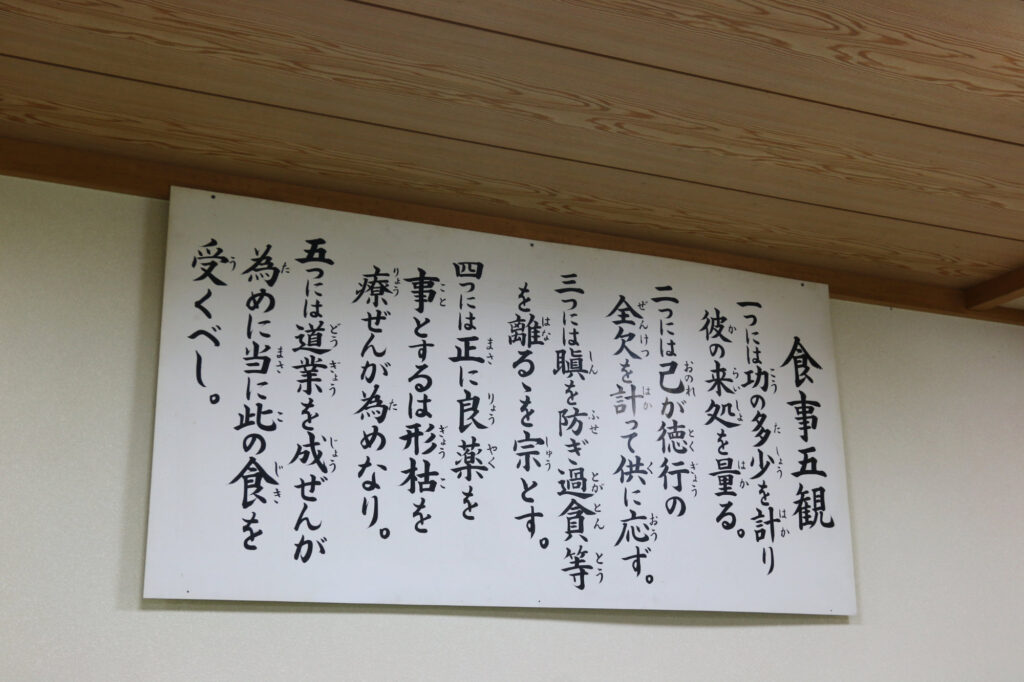 食事五観
一つには功の多少を計り
彼の来処を量る。
二つには己が徳行の
全欠を計って供に応ず。
三つには瞋を防ぎ過貪等
を離るゝを宗とす。
四つには正に良薬を
事とするは形枯を
療ぜんが為めなり。
五つには道業を成ぜんが
為めに当に此の食を
受くべし。